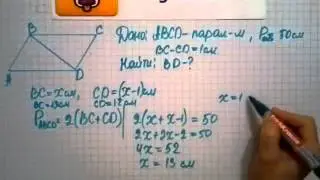 B C
A D
Дано: ABCD - парал-м, P = 50 см
BC - CD = 1 см
Найти: BD - ?
BC = x см, CD = (x-1) см
BC = 13 см CD = 12 см
P ABCD = 2(BC + CD)
2(x + x - 1) = 50
2x + 2x - 2 = 50
4x = 52
x = 13 см
x = 1